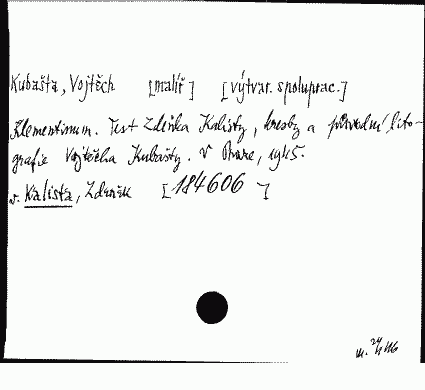 Kubašta, Vojtěch [malíř] [výtvar. spoluprac.]
Klementinum. Text Zdeňka Kalisty, kresby a původní lito-
grafie Vojtěcha Kubašty. V Praze, 1945.
v. Kalista, Zdeněk [184606]